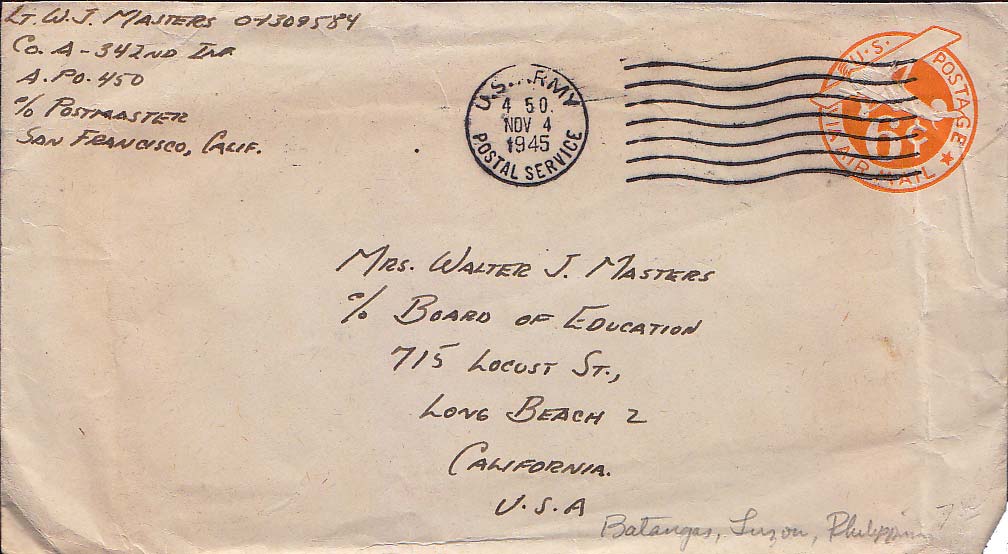 Lt. W. J. Masters 01309584
Co. A - 342nd Inf.
A.P.O. 450
c/o Postmaster
San Francisco, Calif.
U.S. ARMY
4 50
NOV 4
1945
POSTAL SERVICE
U.S. POSTAGE
6¢
VIA AIR MAIL
Mrs. Walter J. Masters
c/o Board of Education
715 Locust St.,
Long Beach 2
California.
U.S.A
Batangas, Luzon, Philippin